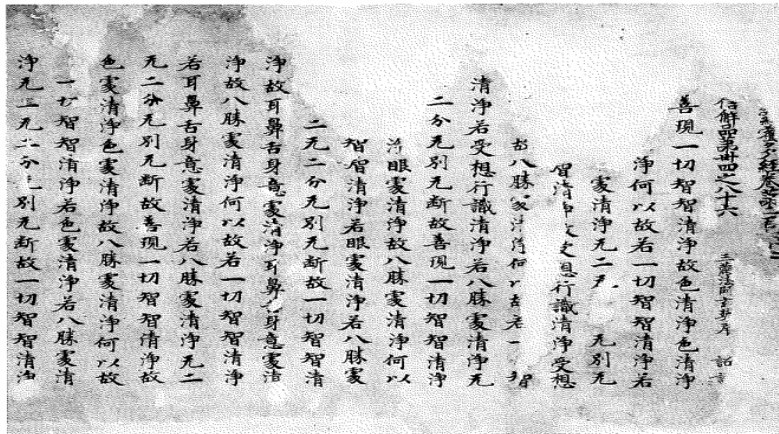 蜜多經卷第二百
信解品第卅四之八十六 三藏法師玄奘奉 詔譯
善現一切智智清淨故色清淨色清淨
淨何以故若一切智智清淨若
處清淨无二无 无別无
智清淨故受想行識清淨受想
故八勝處清淨何以故若一 智
清淨若受想行識清淨若八勝處清淨无
二分无別无斷故善現一切智智清淨
淨眼處清淨故八勝處清淨何以
智智清淨若眼處清淨若八勝處
二无二分无別无斷故一切智智清
淨故耳鼻舌身意處清淨耳鼻舌身意處清
淨故八勝處清淨何以故若一切智智清淨
若耳鼻舌身意處清淨若八勝處清淨无二
无二分无別无斷故善現一切智智清淨故
色處清淨色處清淨故八勝處清淨何以故
一切智智清淨若色處清淨若八勝處清
淨无二无二分无別无斷故一切智智清淨